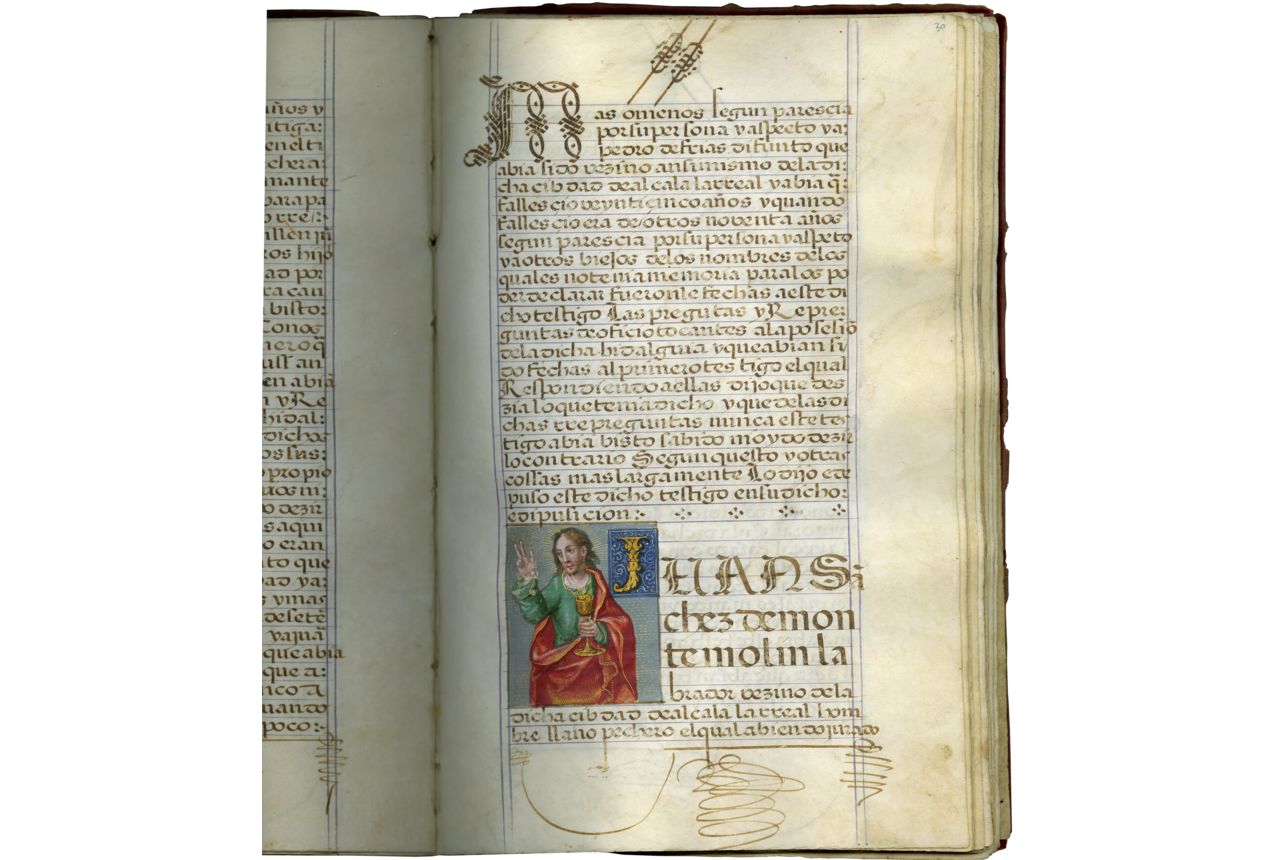 ños y
tiga:
en el ti
chera:
mante
para pa
o rre:~
ros hijo
ad por
ra cau
bisto:
Conos
nero q̃
uss̃ an
en abia
n y Re
hidal:
dichos
os sus:
propio
o dezir
s aqui
o eran
to que
ad ya:
s y mas
de sete
y a juã
que abia
que a:
nco A
uando
poco:~
30
Mas omenos segun parescia
por su persona y aspecto y a:
pedro de frias difunto que
abia sido vezino ansimismo de la di:
cha cibdad de alcala la rreal y abia q̃:
fallesçio veynti cinco años y quando
fallesçio era de otros noventa años
segun parescia por su persona y aspeto
y a otros biejos de los nombres de los
quales no tenia memoria para los po
der declarar fueronle fechas a este di
cho testigo Las pregũtas y Repre
guntas de oficio tocãtes a la posesiõ
de la dicha hidalguia y que abian si
do fechas al primero testigo el qual
Respondiendo a ellas dijo que des
zia lo que tenia dicho y que de las di
chas rrepreguntas nunca este tes
tigo abia bisto sabido ni oydo dezir
lo contrario Segun questo y otras
cossas mas largamente Lo dijo e de
puso este dicho testigo en su dicho:
e dipusicion:~
IUAN Sã
chez de mon
temolin la
brador vezino de la
dicha cibdad de alcala la rreal hom
bre llano pechero el qual abiendo jurado